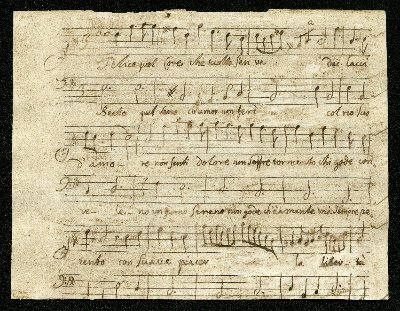 Felice quel Core che sciolto sen va dai lacci
Beato quel seno ch'amor non ferì col rio suo
d'amo - re non senti dolore non soffre tormento chi gode con
ve - le - no un giorno sereno non gode ch'è amante
con soave pe la liber - tà